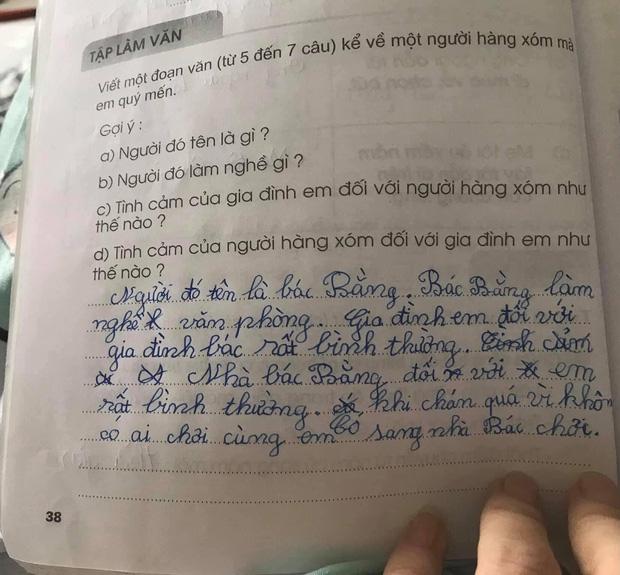 TẬP LÀM VĂN
Viết một đoạn văn (từ 5 đến 7 câu) kể về một người hàng xóm mà
em quý mến.
Gợi ý :
a) Người đó tên là gì ?
b) Người đó làm nghề gì ?
c) Tình cảm của gia đình em đối với người hàng xóm như
thế nào ?
d) Tình cảm của người hàng xóm đối với gia đình em như
thế nào ?
Người đó tên là bác Bằng. Bác Bằng làm
nghề văn phòng. Gia đình em đối với
gia đình bác rất bình thường.
Nhà bác Bằng đối với em
rất bình thường. khi chán quá vì khôn
có ai chơi cùng em bo sang nhà Bác chơi.
38